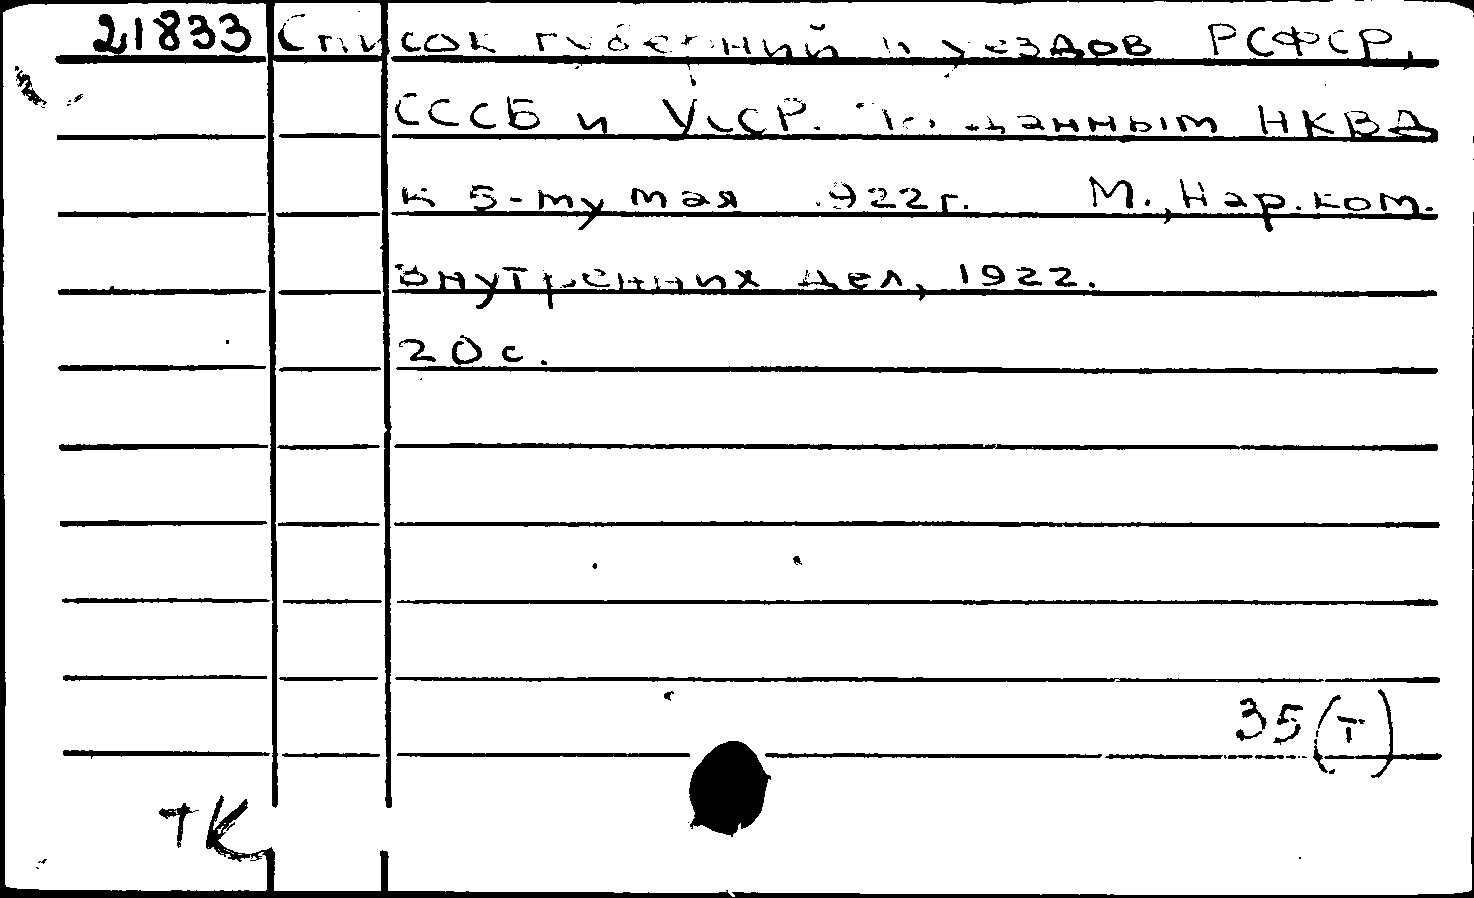 21833 Список губерний и уездов РСФСР,
СССБ и УССР. По данным НКВД
к 5-му мая 1922г. М., Нар.ком.
внутренних дел, 1922.
20 с.
35(т)
ТК